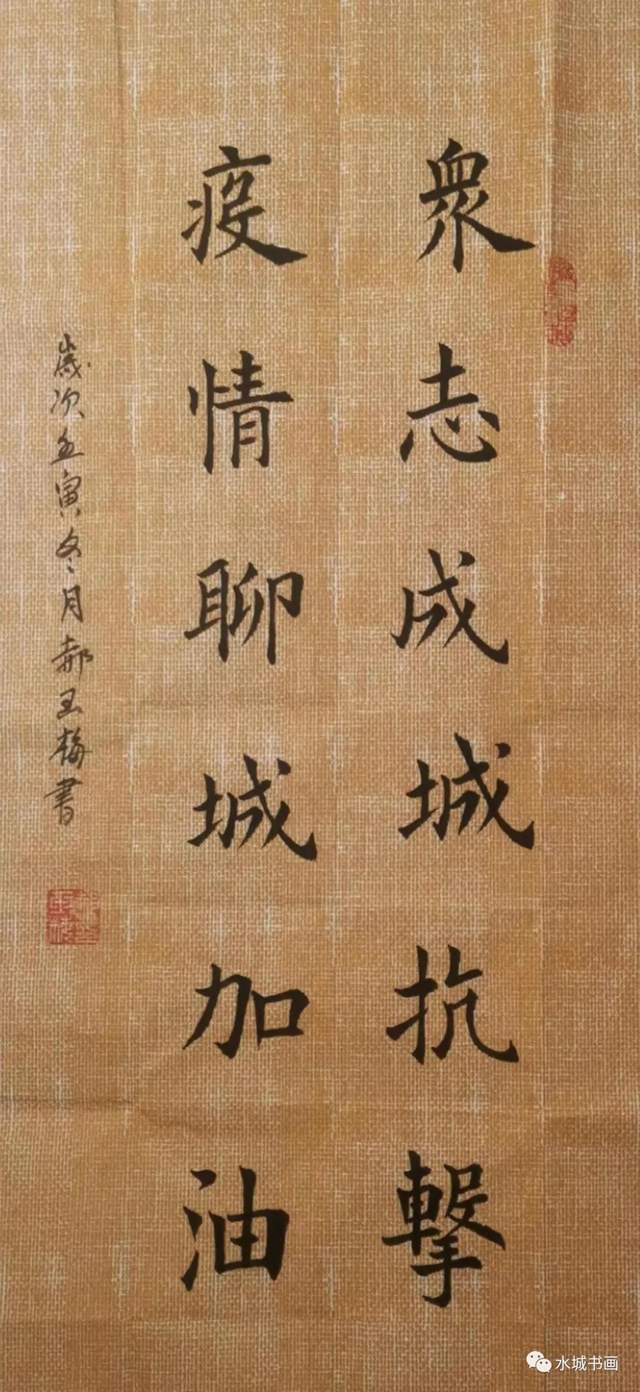 衆志成城抗撃
疫情聊城加油
歲次壬寅冬月郝玉梅書
水城书画